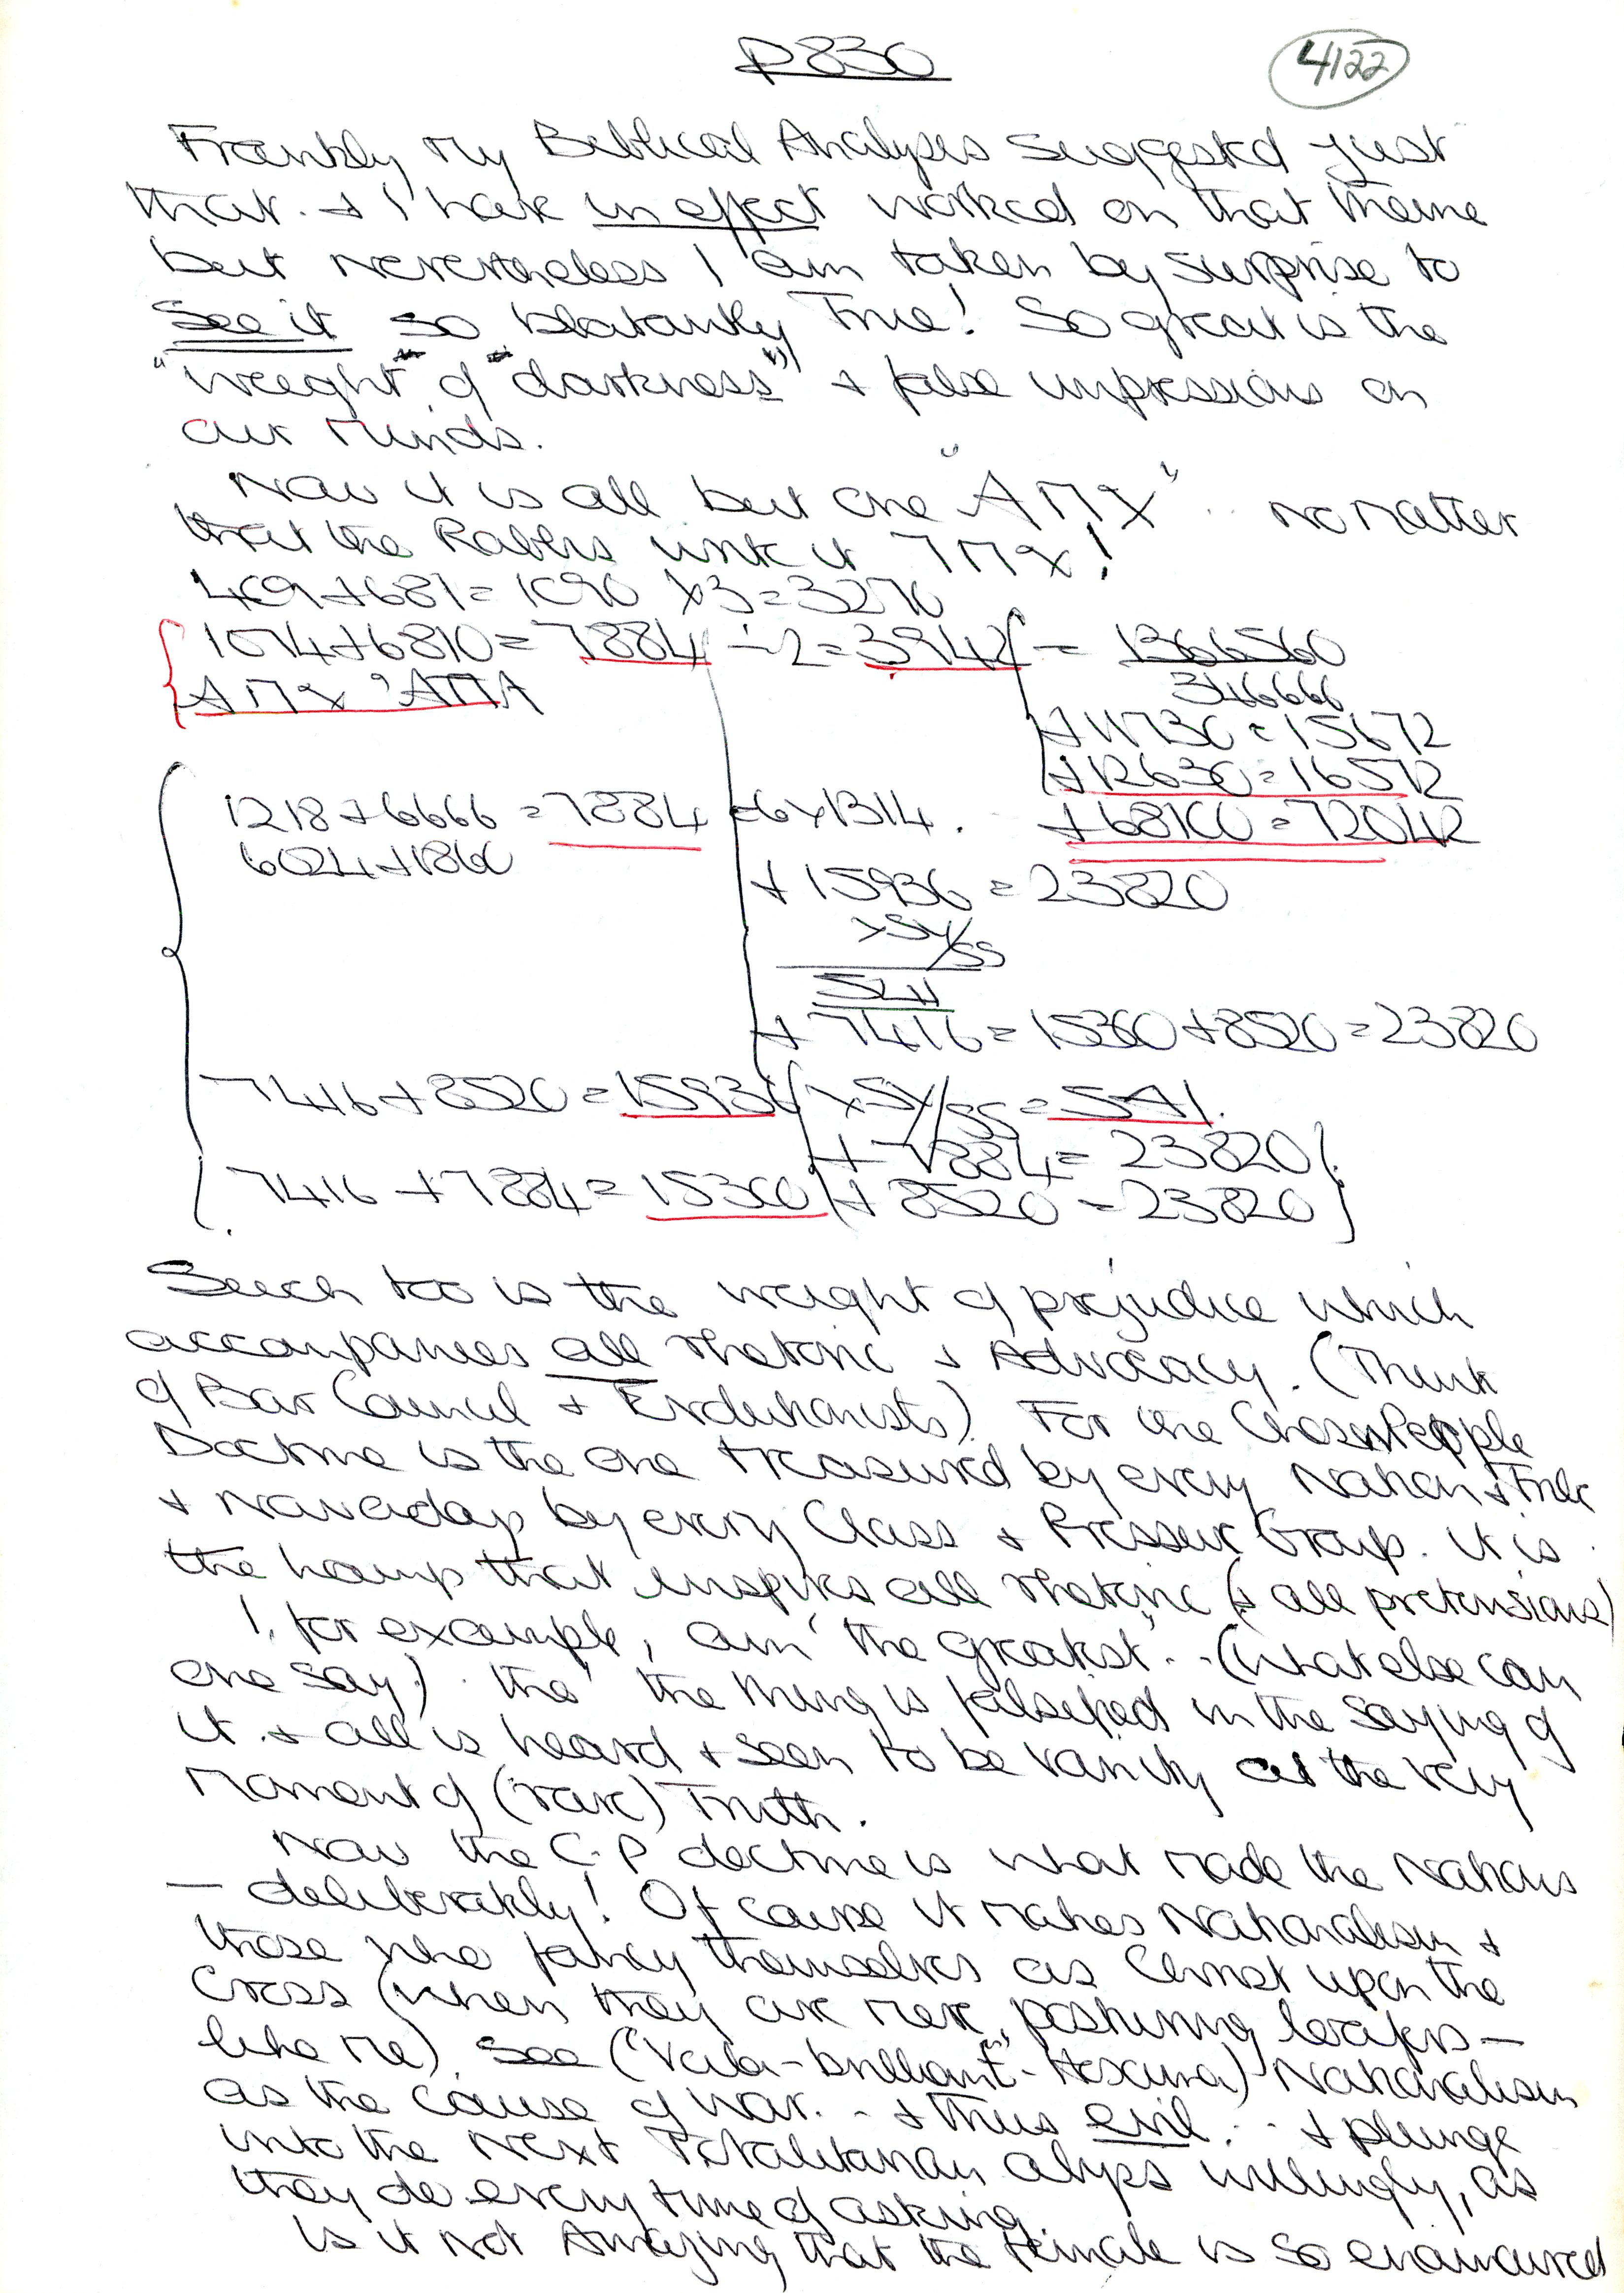 P830
4122
Frankly my Biblical Analyses suggested just
that. + I have in effect worked on that theme
but nevertheless I am taken by surprise to
see it so blatantly True! So great is the
"weight of "darkness" + false impressions on
our minds.
Now it is all but one "AΠX" .. no matter
that the Rabbis write it 7ΠX!
409+681=1090 x3=3270
1074+6810=7884 ÷2=3942 = 1366560
346666
AΠX 'AΠA
+11730=15672
+12630=16572
1218+6666=7884 =6x1314. +68100=72042
6024+1860
+15936=23820
x54/55
5211
+7416=15300+8520=23820
7416+8520=15936 x54/55=5771.
+7884=23820
7416+7884=15300 +8520=23820
Such too is the weight of prejudice which
accompanies all rhetoric + Advocacy. (Think
of Bar Council + Evolutionists). For the Chosen People
Doctrine is the one treasured by every Nation + Tribe
+ Nowadays by every Class + Pressure Group. It is
the hump that inspires all rhetoric (+ all pretensions)
I, for example, am "the greatest".. (What else can
one say). tho' the thing is falsified in the saying of
it. + all is heard + seen to be vanity at the very
moment of (rare) Truth.
Now the C.P doctrine is what made the Nations
— deliberately! Of course it makes Nationalism +
those who fancy themselves as Christ upon the
Cross (when they are mere, posturing loafers —
like me). See ("Veda-brilliant"- ) Nationalism
as the cause of War. .. + thus evil .. + plunge
into the next Totalitarian abyss willingly, as
they do every time of asking.
Is it not Amazing that the female is so enamoured